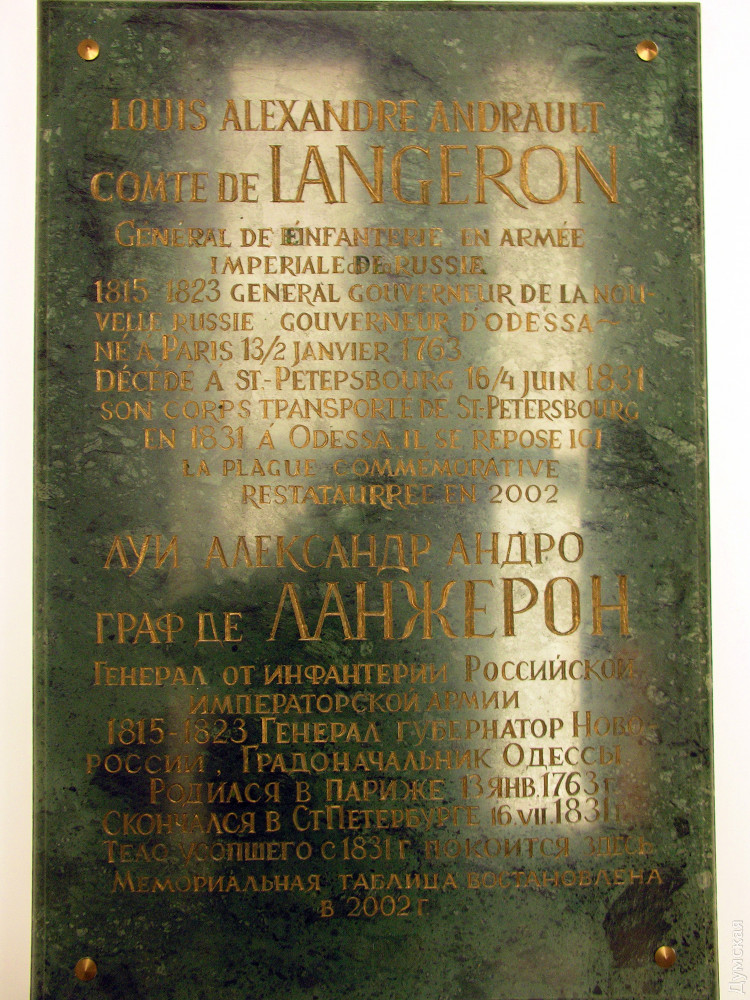 LOUIS ALEXANDRE ANDRAULT
COMTE DE LANGERON
GÉNÉRAL DE L'INFANTERIE EN ARMÉE
IMPERIALE DE RUSSIE
1815-1823 GENERAL GOUVERNEUR DE LA NOU-
VELLE RUSSIE GOUVERNEUR D'ODESSA—
NÉ A PARIS 13/2 JANVIER 1763
DÉCÉDÉ A ST-PETEPSBOURG 16/4 JUIN 1831
SON CORPS TRANSPORTÉ DE ST-PETERSBOURG
EN 1831 Á ODESSA IL SE REPOSE ICI
LA PLAGUE COMMÉMORATIVE
RESTATAURRÉE EN 2002
ЛУИ АЛЕКСАНДР АНДРО
ГРАФ ДЕ ЛАНЖЕРОН
ГЕНЕРАЛ ОТ ИНФАНТЕРИИ РОССИЙСКОЙ
ИМПЕРАТОРСКОЙ АРМИИ
1815-1823 ГЕНЕРАЛ ГУБЕРНАТОР НОВО-
РОССИИ, ГРАДОНАЧАЛЬНИК ОДЕССЫ
РОДИЛСЯ В ПАРИЖЕ 13 ЯНВ. 1763 г
СКОНЧАЛСЯ В СТ ПЕТЕРБУРГЕ 16.VII.1831 г.
ТЕЛО УСОПШЕГО С 1831 г ПОКОИТСЯ ЗДЕСЬ
МЕМОРИАЛЬНАЯ ТАБЛИЦА ВОСТАНОВЛЕНА
В 2002 г
Думская